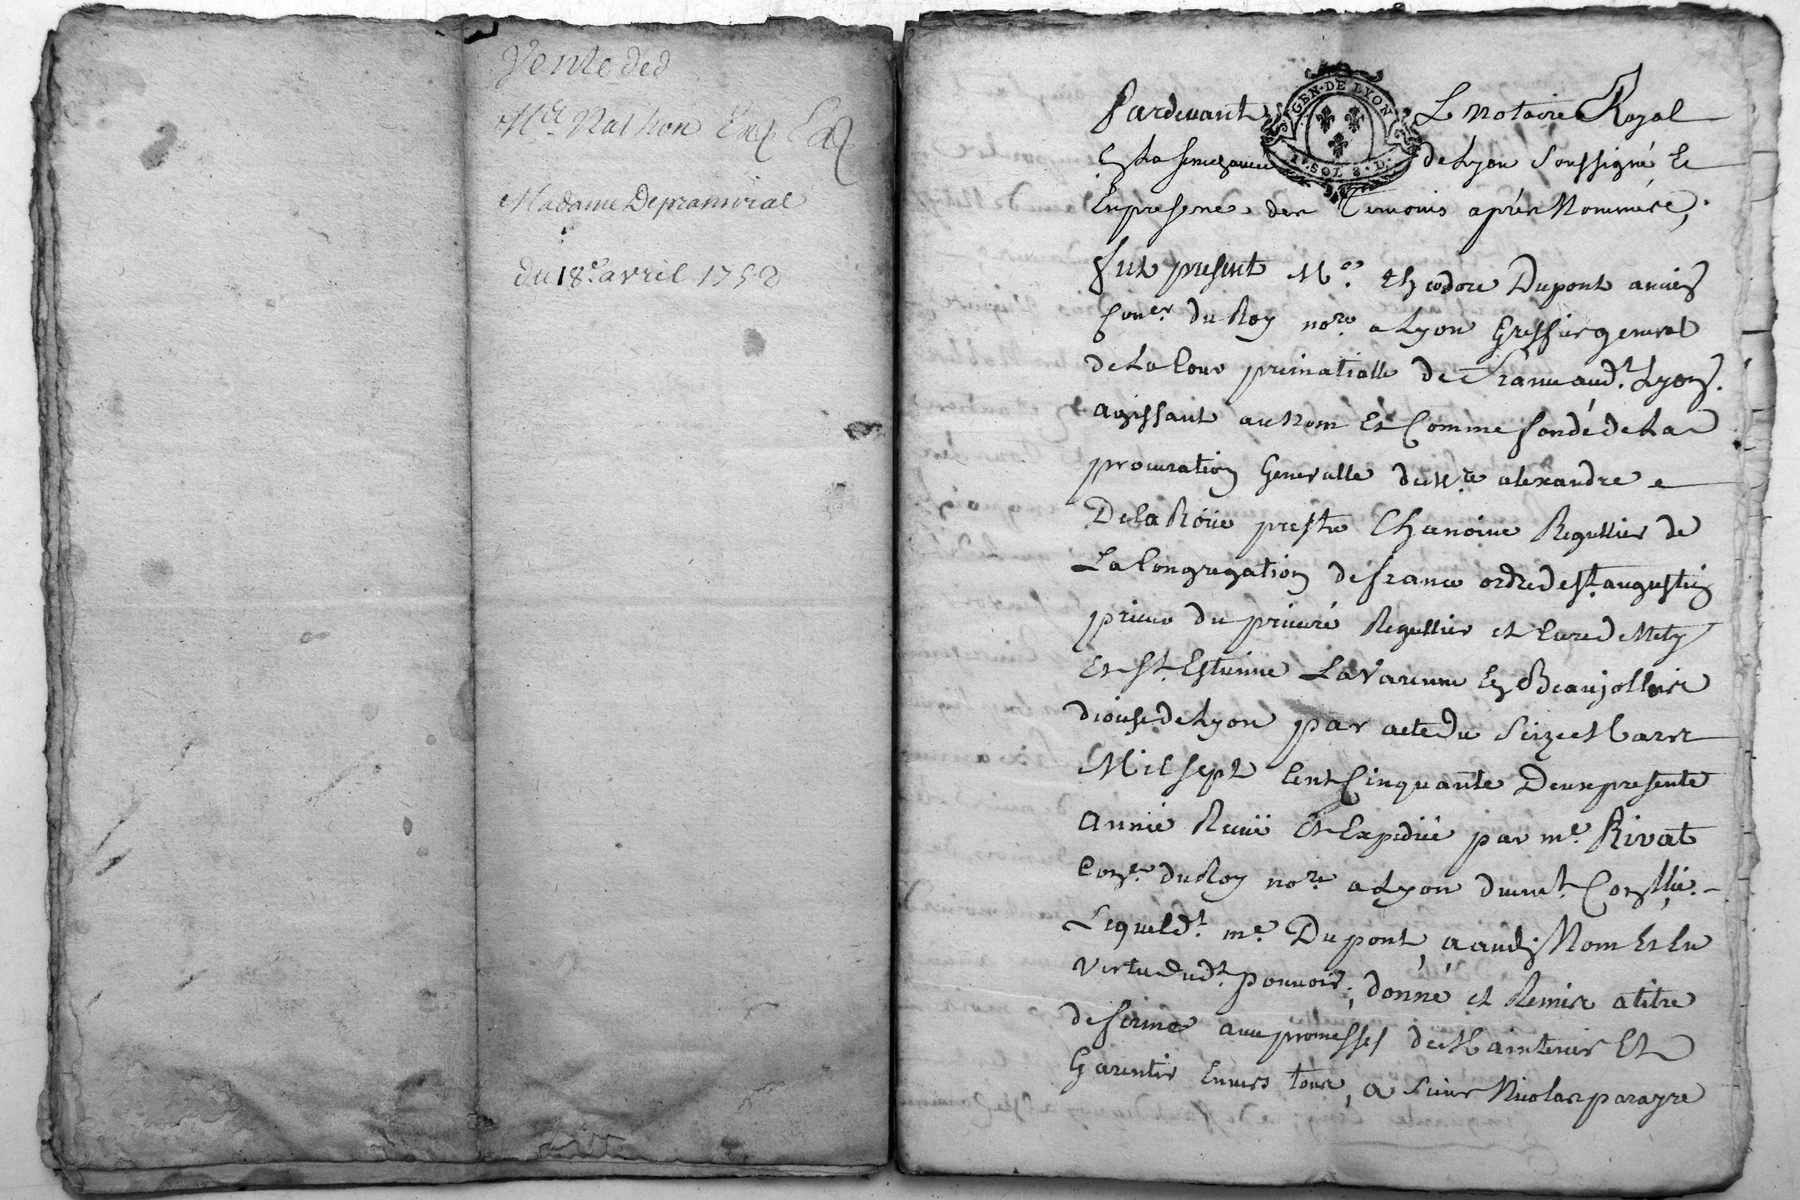 Vente de
Madame Depramiral
du 18e. avril 1752
GEN. DE LYON
1r. SOL 8. D.
Pardevant Le Notaire Royal
En la Senechaussée de Lyon soussigné Et
En presence des Temoins aprés Nommés,
fut present Me. theodore Dupont ancien
Coner. du Roy nore. a Lyon Greffier general
de La Cour primatialle de France aud. Lyon.
agissant au Nom Et Comme fondé de La
procuration Generalle de alexandre
De la Roüe prestre Chanoine Regullier de
La Congregation de france ordre de st. augustin
prieur du prieuré Regullier et Cure de
Et St. Estienne La Varenne En Beaujollois
diocese de Lyon par acte du Seize Mars
Mil sept Cent Cinquante Deux presente
année Receu Et Expedié par me. Rivat
Coner. du Roy nore. a Lyon
Lequel dt. me. Dupont, aud. Nom Et En
vertu dudt. pouvoir, donné et Remis a titre
de ferme avec promesses de Maintenir Et
Garentir Envers tous, a Sieur Nicolas parayre